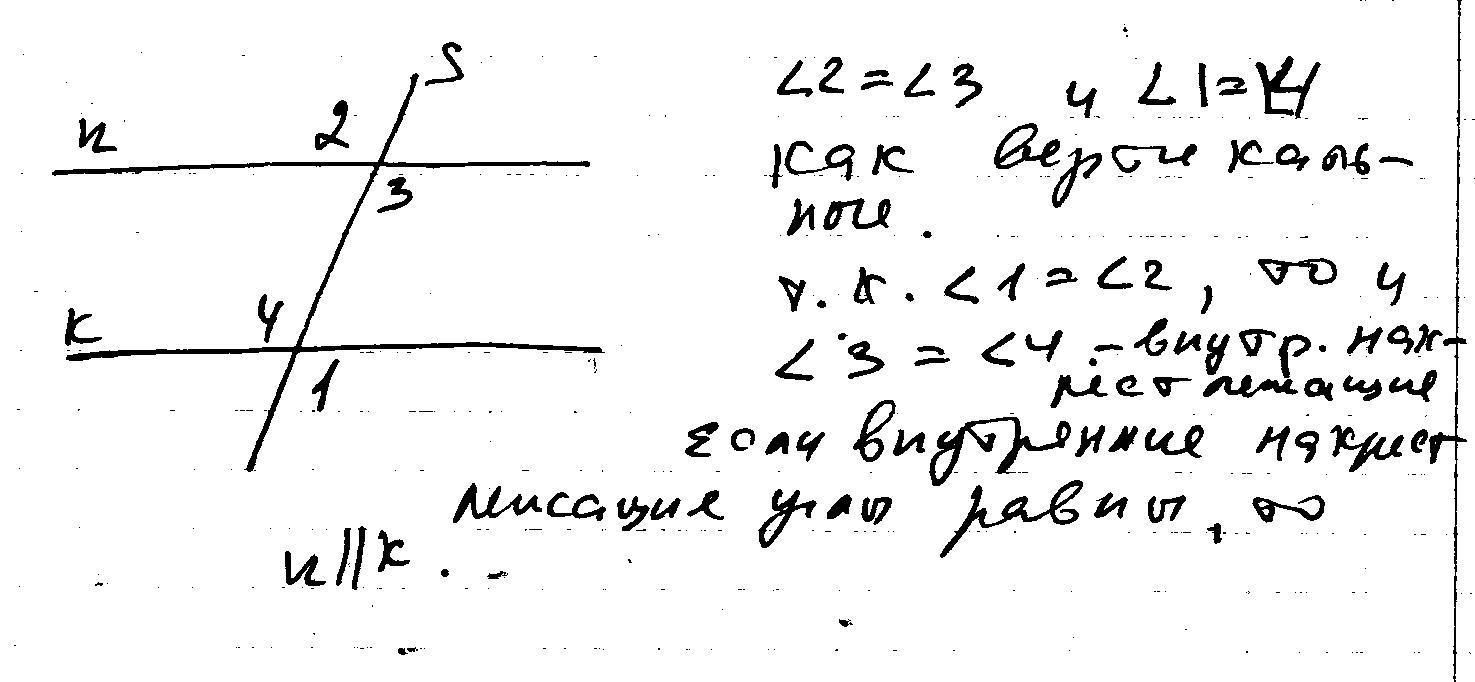 S
n
2
3
k
4
1
∠2 = ∠3 и ∠1 = ∠4
как вертикаль-
ные.
т. к. ∠1 = ∠2, то и
∠3 = ∠4 - внутр. нак-
рест лежащие
Если внутренние накрест
лежащие углы равны, то
n || k.